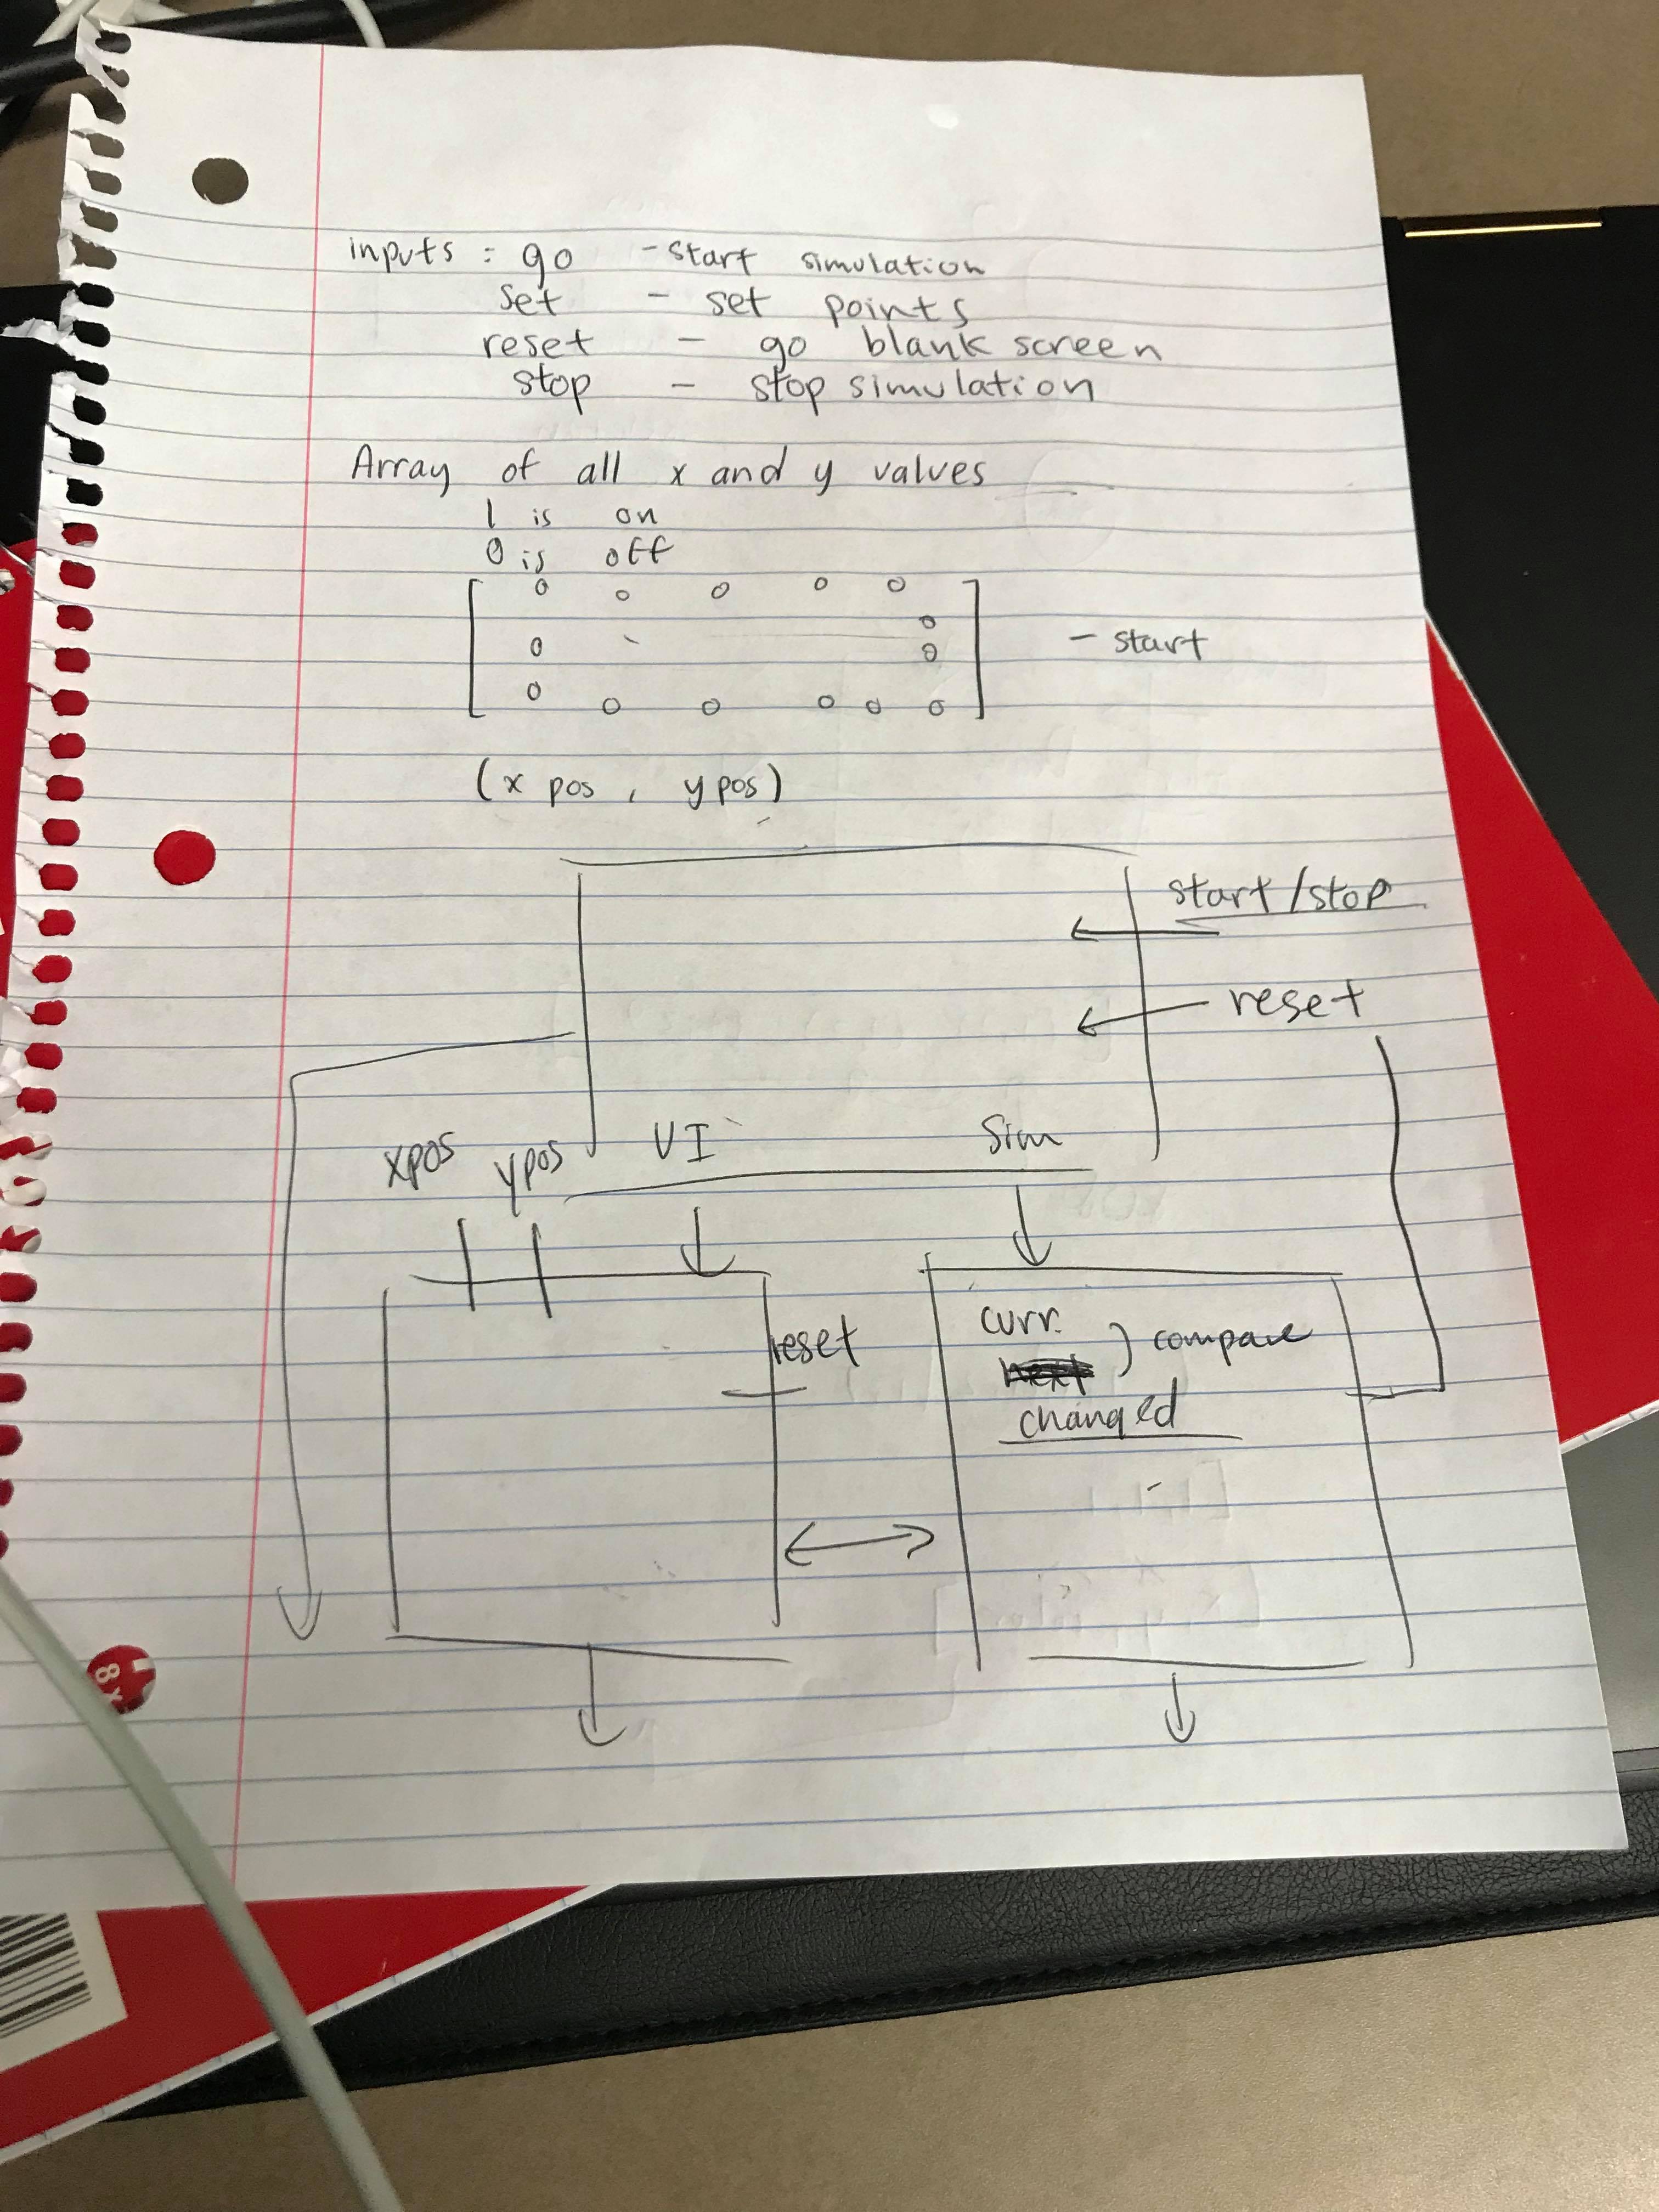 inputs : go - start simulation
set - set points
reset - go blank screen
stop - stop simulation
Array of all x and y values
1 is on
0 is off
0 0 0 0 0
0
0 0 - start
0
0 0 0 0 0
(x pos, y pos)
start/stop
reset
xpos ypos UI Sim
curr.
reset compare
changed
8